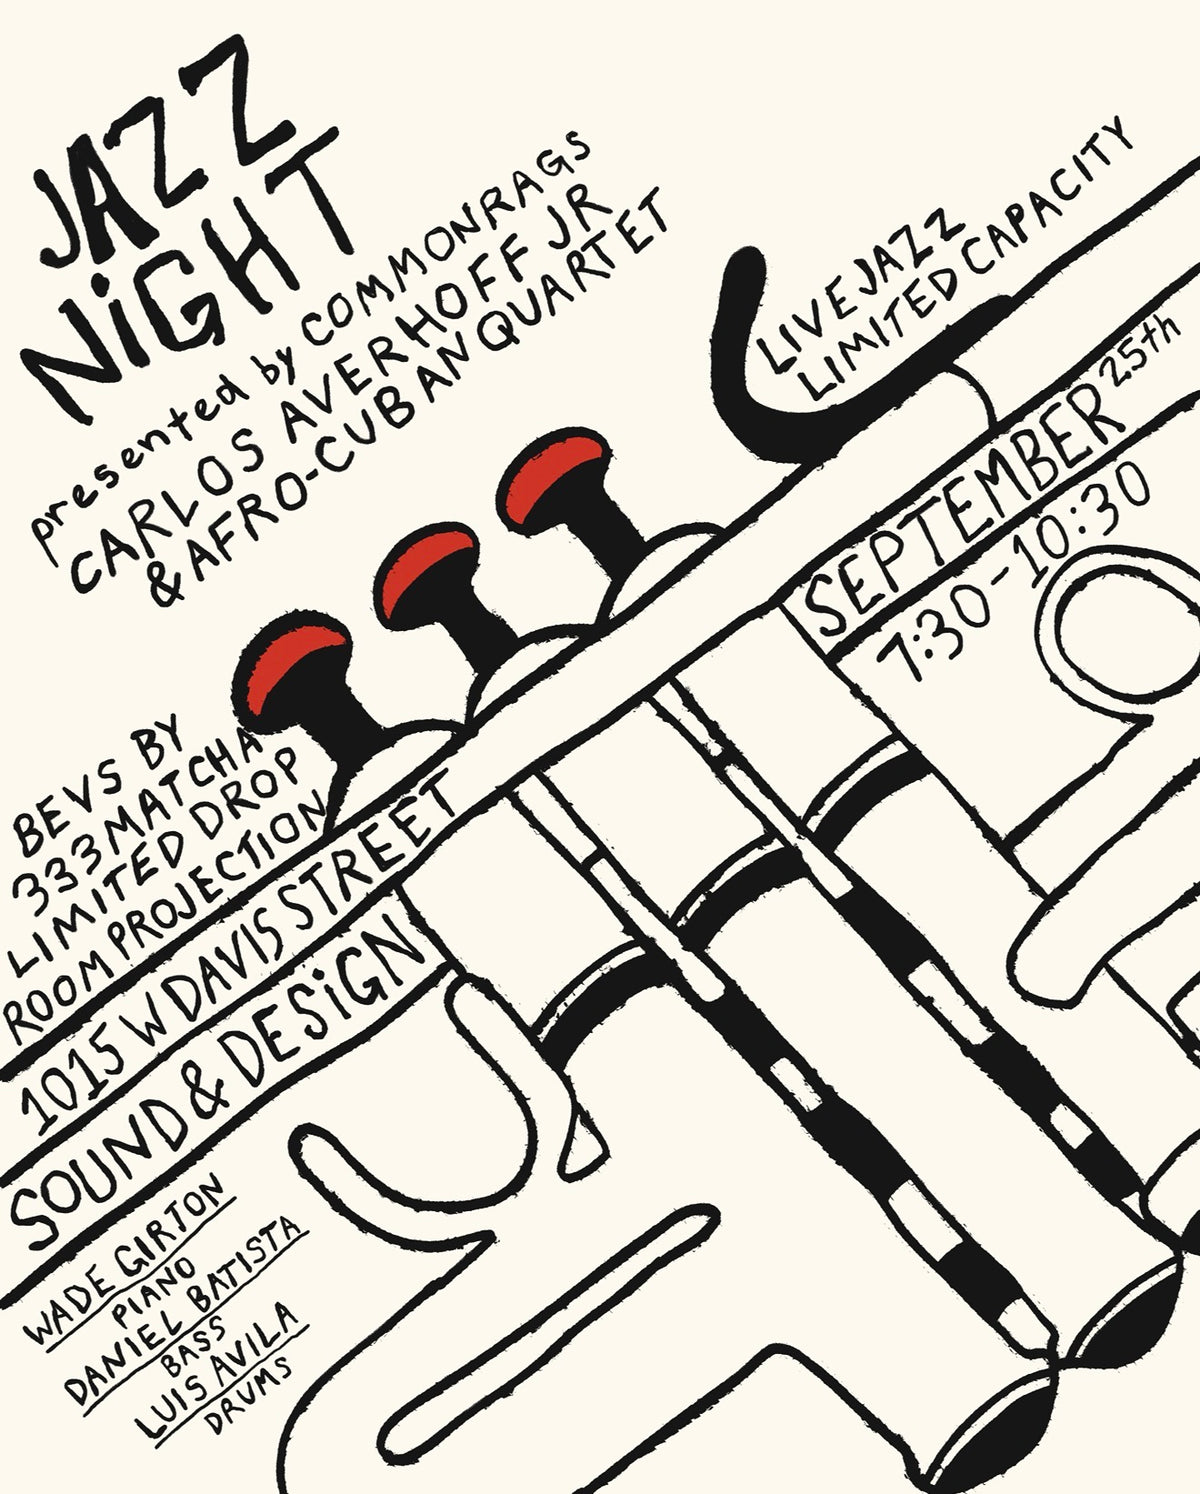 JAZZ
NiGHT
presented by COMMONRAGS
CARLOS AVERHOFF JR
& AFRO-CUBAN QUARTET
LIVE JAZZ
LIMITED CAPACITY
SEPTEMBER 25th
7:30-10:30
BEVS BY
333MATCHA
LIMITED DROP
ROOM PROJECTION
1015 W DAVIS STREET
SOUND & DESiGN
WADE GIRTON
PIANO
DANIEL BATISTA
BASS
LUIS AVILA
DRUMS